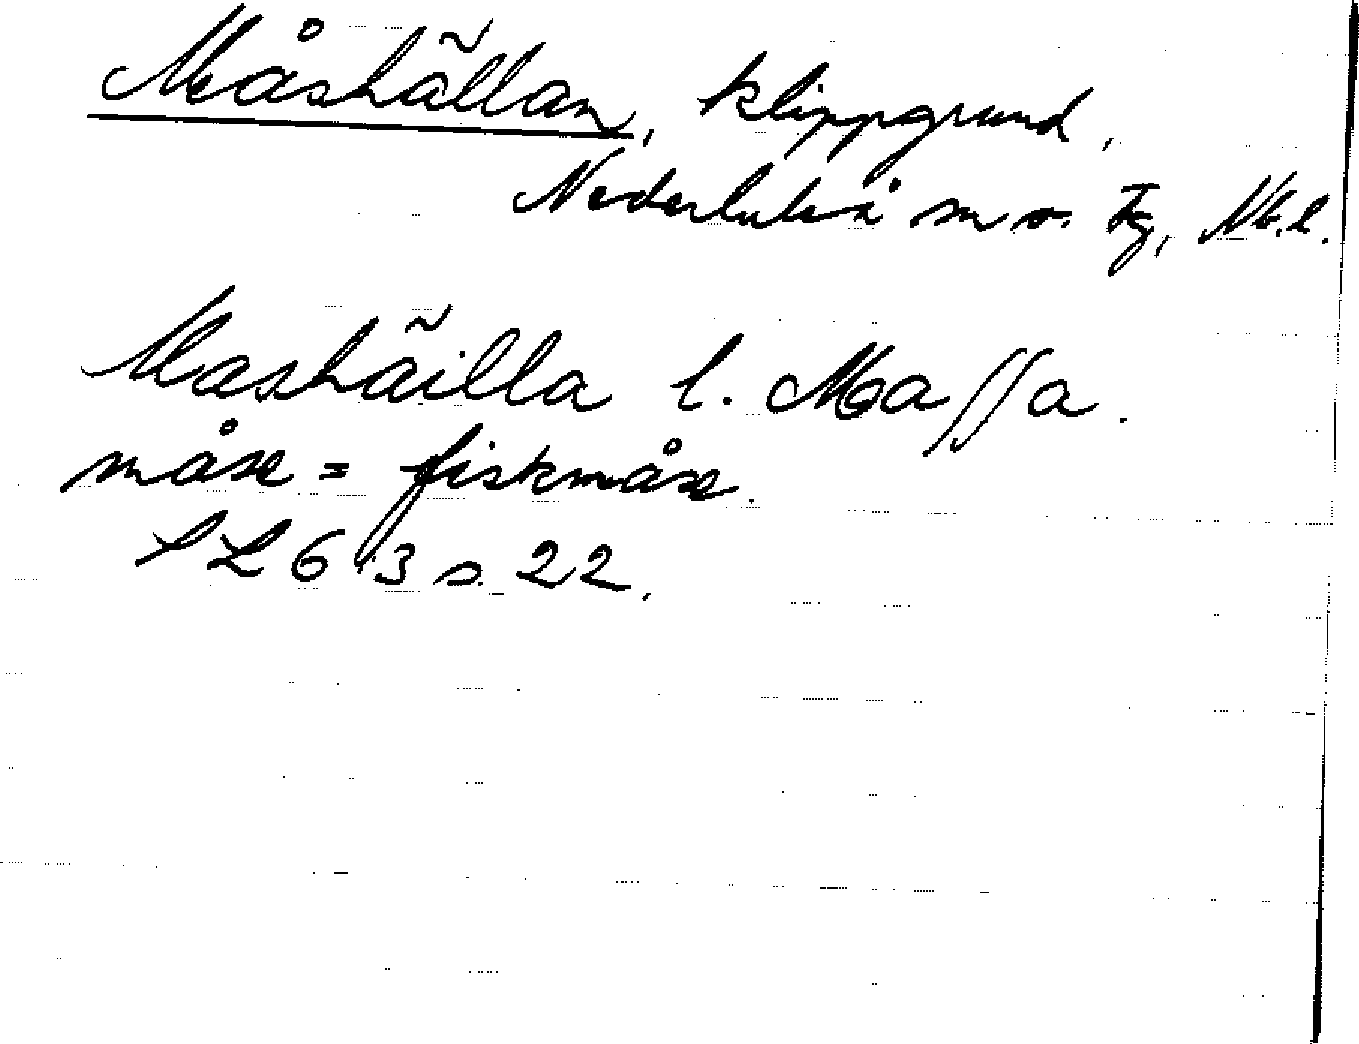 Måshällan, klippgrund,
Nederluleå sn o. Tg, Nb.l.
Mashäilla l. Massa.
måse = fiskmåse.
LL 63 s. 22.